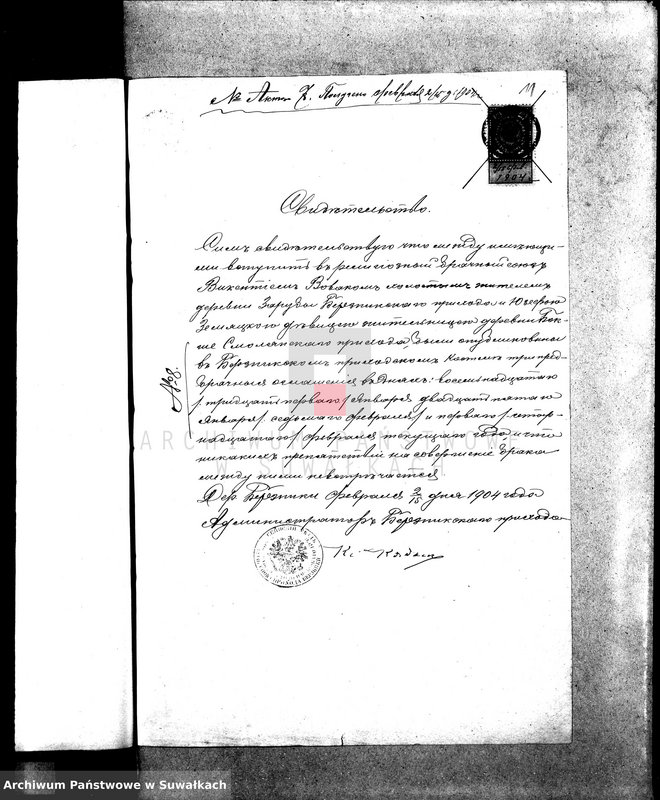 № Акта 7. Получено февраля 2/15 д. 1904
11
1904
Свидѣтельство.
Симъ свидѣтельствую что между имѣющи-
ми вступить въ религіозный брачный союзъ
Викентіемъ Воваконъ холостымъ жителемъ
деревни Заруды Березникскаго прихода и Юзефою
Земляцкого дѣвицею жительницею деревни Бок-
ше Смолянскаго прихода были опубликованы
въ Березникскомъ приходскомъ костелѣ три пред-
брачныя оглашенія въ дняхъ: восемьнадцатаго
/тридцать перваго/ Января двадцать пятаго
Января /седьмаго Февраля/ и перваго /четыр-
надцатаго/ Февраля текущаго года и что
никакихъ препятствій на совершеніе брака
между ними невстрѣчается.
Дер. Березники Февраля 2/15 дня 1904 года
Администраторъ Березникскаго прихода
Кс.
№8.
ARCHIWUM PAŃSTWOWE
W SUWAŁKACH
Archiwum Państwowe w Suwałkach